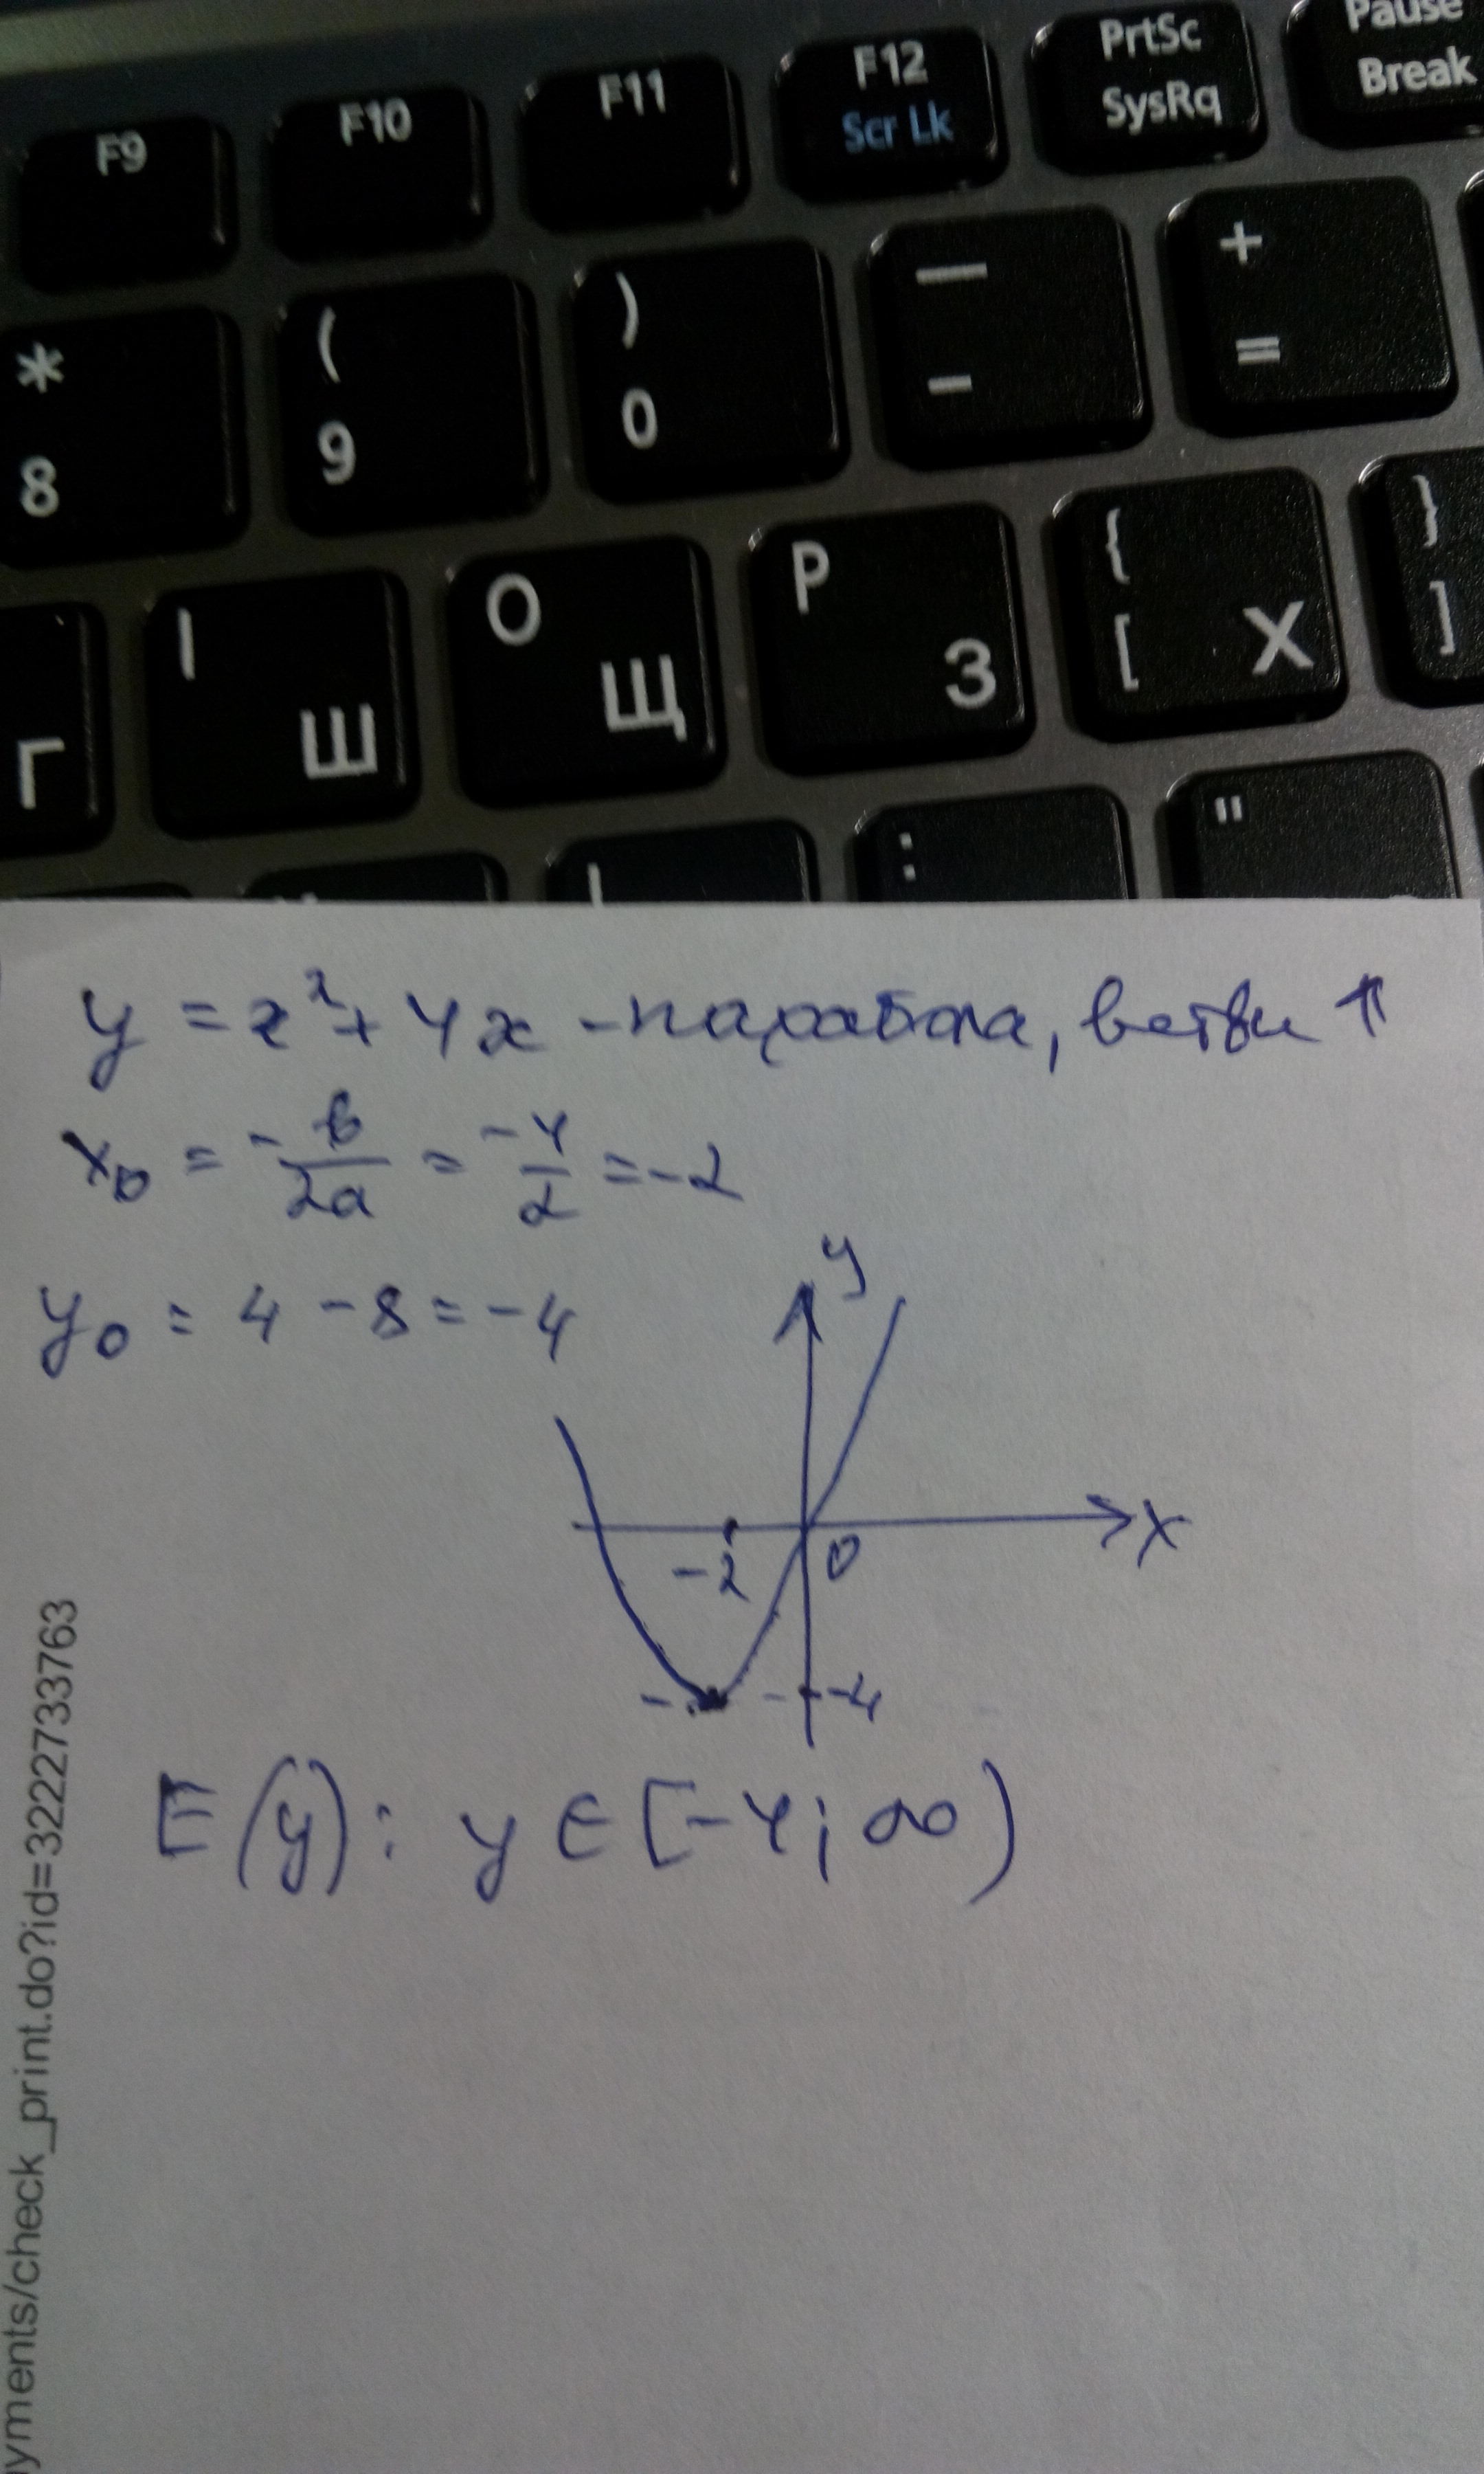 F9 F10 F11 F12 PrtSc Pause
Scr Lk SysRq Break
* ( ) — +
8 9 0 - =
I O P { }
Г Ш Щ З [ Х ]
: "
y = x² + 4x - парабола, ветви ↑
x₀ = -b/2a = -4/2 = -2
y₀ = 4 - 8 = -4
y
x
-2 0
-4
E(y): y ∈ [-4; ∞)
yments/check_print.do?id=3222733763